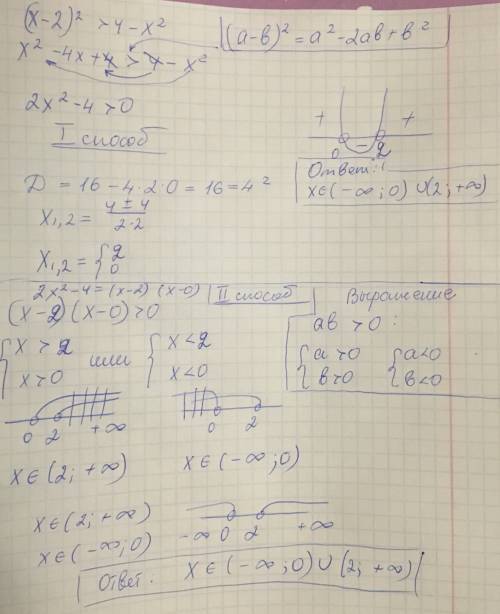 (x-2)² > 4 - x²
(a-в)² = a² - 2aв + в²
x² - 4x + 4 > 4 - x²
2x² - 4 > 0
I способ
+ - +
0 2
Ответ:
x∈(-∞; 0) ∪ (2; +∞)
D = 16 - 4·2·0 = 16 = 4²
x₁,₂ = (4 ± 4)/(2·2)
x₁,₂ = { 2
0
2x² - 4 = (x-2)(x-0)
II способ
(x-2)(x-0) > 0
Выражение
aв > 0:
{ x > 2 или { x < 2
x > 0 x < 0
{ a > 0 { a < 0
в > 0 в < 0
0 2 +∞
0 2
x∈(2; +∞)
x∈(-∞; 0)
x∈(2; +∞)
x∈(-∞; 0)
-∞ 0 2 +∞
Ответ. x∈(-∞; 0) ∪ (2; +∞)